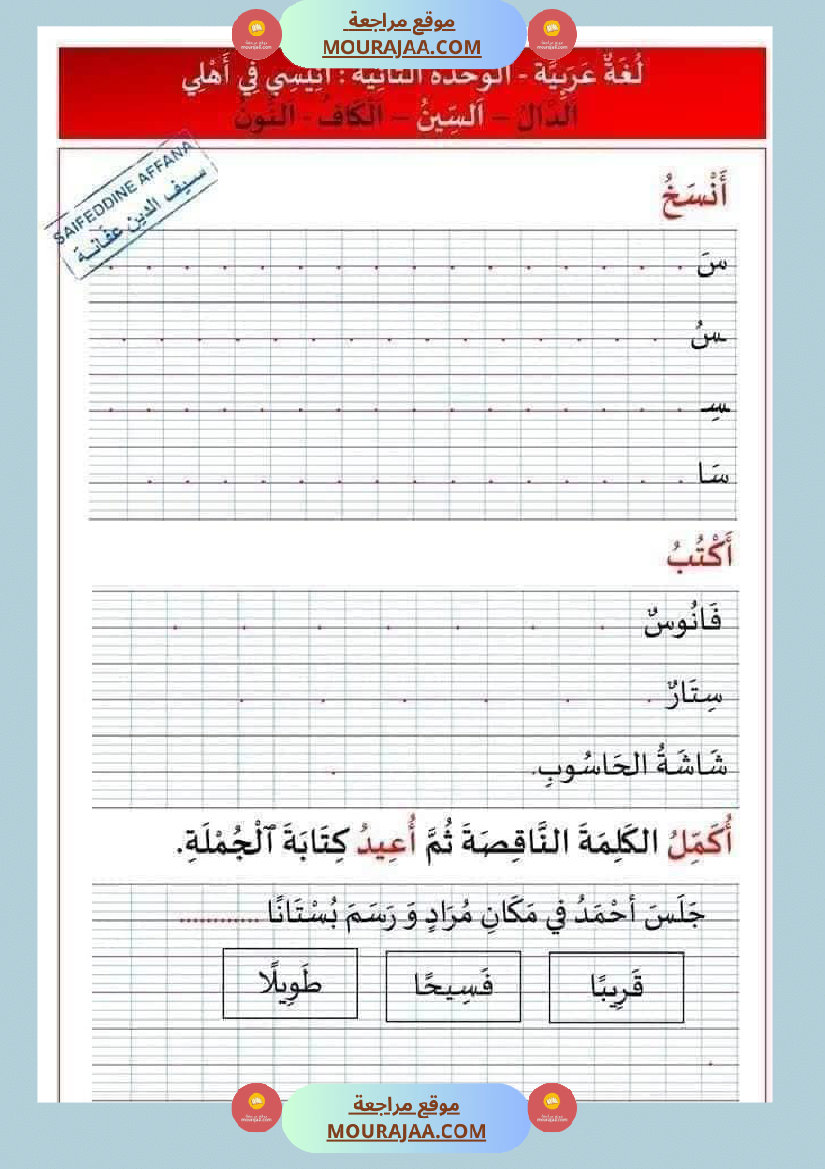 موقع مراجعة
MOURAJAA.COM
لُغَةٌ عَرَبِيَّة - الوحدة الثانية : أَنِيسِي فِي أَهْلِي
اَلدَّالُ – اَلسِّينُ – اَلْكَافُ - اَلنُّونُ
SAIFEDDINE AFFANA
سيف الدين عفانة
أَنْسَخُ
سَ
سُ
سِ
سَا
أَكْتُبُ
فَانُوسٌ
سِتَارٌ
شَاشَةُ الحَاسُوبِ
أُكَمِّلُ الكَلِمَةَ النَّاقِصَةَ ثُمَّ أُعِيدُ كِتَابَةَ ٱلْجُمْلَةِ.
جَلَسَ أحْمَدُ فِي مَكَانِ مُرَادٍ وَ رَسَمَ بُسْتَانًا ............
قَرِيبًا فَسِيحًا طَوِيلًا
موقع مراجعة
MOURAJAA.COM